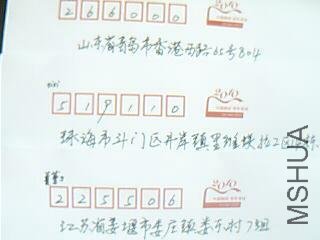 266000
山东省青岛市香港西路65号804
519110
珠海市斗门区井岸镇
225506
江苏省姜堰市娄庄镇娄东村7组
MSHUA